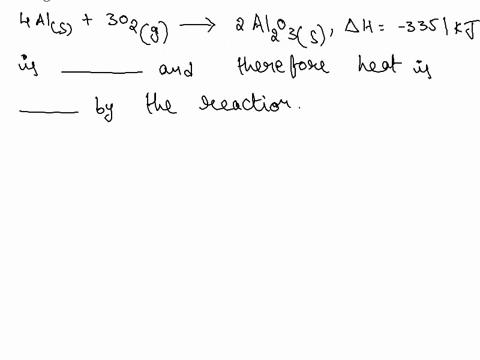 4Al(s) + 3O2(g) ⟶ 2Al2O3(s), ΔH = -3351 kJ
is ______ and therefore heat is
_____ by the reaction.